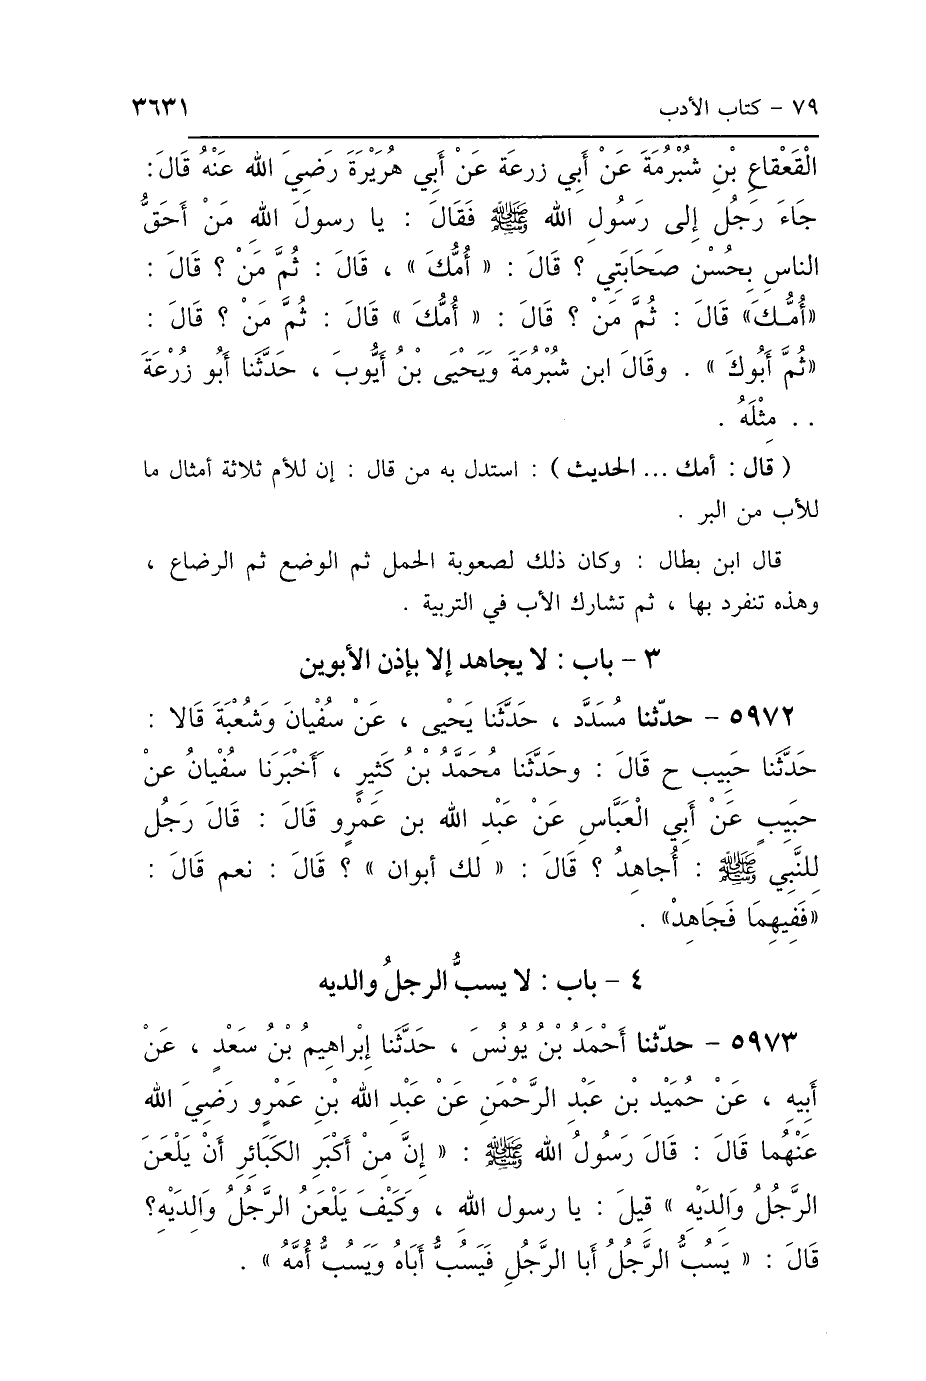 ٧٩ - كتاب الأدب ٣٦٣١
الْقَعْقاعِ بْنِ شُبْرُمَةَ عَنْ أَبي زرعَة عَنْ أَبي هُرَيْرَةَ رَضِيَ الله عَنْهُ قَالَ :
جَاءَ رَجُل إلى رَسُولِ الله ﷺ فَقَالَ : يا رسولَ اللهِ مَنْ أحَقُّ
الناسِ بِحُسْنِ صَحَابَتِي ؟ قَالَ : « أُمُّكَ » ، قَالَ : ثُمَّ مَنْ ؟ قَالَ :
«أُمُّـكَ» قَالَ : ثُمَّ مَنْ ؟ قَالَ : « أُمُّكَ » قَالَ : ثُمَّ مَنْ ؟ قَالَ :
«ثُمَّ أَبُوكَ » . وقَالَ ابن شُبْرُمَةَ وَيَحْيَى بْنُ أَيُّوبَ ، حَدَّثَنا أَبُو زُرْعَةَ
. . مِثْلَهُ .
( قال : أمك ... الحديث ) : استدل به من قال : إن للأم ثلاثة أمثال ما
للأب من البر .
قال ابن بطال : وكان ذلك لصعوبة الحمل ثم الوضع ثم الرضاع ،
وهذه تنفرد بها ، ثم تشارك الأب في التربية .
٣ - باب : لا يجاهد إلا بإذن الأبوين
٥٩٧٢ - حدّثنا مُسَدَّد ، حَدَّثَنا يَحْيى ، عَنْ سُفْيانَ وَشُعْبَةَ قَالا :
حَدَّثَنا حَبِيب ح قَالَ : وحَدَّثَنا مُحَمَّدُ بْنُ كَثِيرٍ ، أَخْبَرَنا سُفْيانُ عنْ
حبَيبٍ عَنْ أَبي الْعَبَّاسِ عَنْ عَبْدِ الله بن عَمْرو قَالَ : قَالَ رَجُل
لِلنَّبِي ﷺ : أُجاهِدُ ؟ قَالَ : « لك أبوان » ؟ قَالَ : نعم قَالَ :
«فَفِيهِمَا فَجَاهِدْ» .
٤ - باب : لا يسبُّ الرجلُ والديه
٥٩٧٣ - حدّثنا أَحْمَدُ بْنُ يُونُسَ ، حَدَّثَنا إِبْراهِيمُ بْنُ سَعْدٍ ، عَنْ
أَبِيهِ ، عَنْ حُمَيْدِ بْنِ عَبْدِ الرَّحْمَنِ عَنْ عَبْدِ الله بْنِ عَمْرٍو رَضِيَ الله
عَنْهُما قَالَ : قَالَ رَسُولُ الله ﷺ : « إِنَّ مِنْ أَكْبَرِ الكَبَائرِ أَنْ يَلْعَنَ
الرَّجُلُ وَالدَيْهِ » قِيلَ : يا رسول اللهِ ، وَكَيْفَ يَلْعَنُ الرَّجُلُ وَالِدَيْهِ؟
قَالَ : « يَسُبُّ الرَّجُلُ أبا الرَّجُلِ فَيَسُبُّ أَبَاهُ ويَسُبُّ أُمَّهُ » .